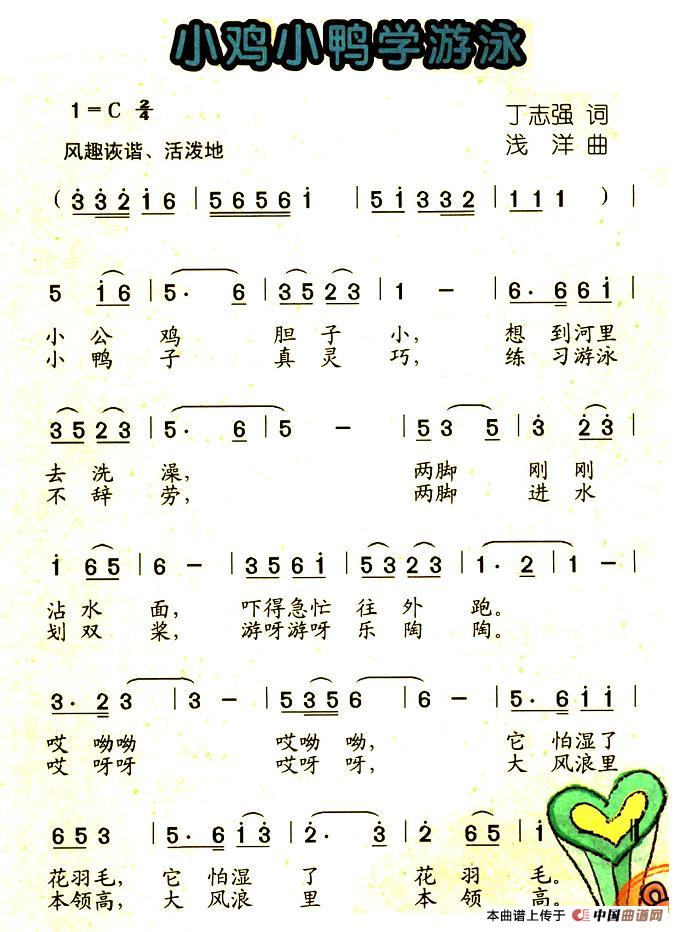 小鸡小鸭学游泳
1=C 2/4
丁志强 词
风趣诙谐、活泼地
浅 洋 曲
( 3̇ 3̇ 2̇ 1̇ 6 | 5 6 5 6 1̇ | 5 1̇ 3 3 2 | 1 1 1 ) |
5 1̇ 6 | 5· 6 | 3 5 2 3 | 1 - | 6· 6 6 1̇ |
小 公 鸡 胆 子 小, 想 到河里
小 鸭 子 真 灵 巧, 练 习游泳
3 5 2̇ 3̇ | 5· 6 | 5 - | 5 3 5 | 3̇ 2̇ 3̇ |
去 洗 澡, 两脚 刚 刚
不 辞 劳, 两脚 进 水
1̇ 6 5 | 6 - | 3 5 6 1̇ | 5 3 2 3 | 1· 2 | 1 - |
沾 水 面, 吓得急忙 往 外 跑。
划 双 桨, 游呀游呀 乐 陶 陶。
3· 2 3 | 3 - | 5 3 5 6 | 6 - | 5· 6 1̇ 1̇ |
哎 呦呦 哎呦 呦, 它 怕湿了
哎 呀呀 哎呀 呀, 大 风浪里
6 5 3 | 5· 6 1̇ 3̇ | 2̇· 3̇ | 2̇ 6 5 | 1̇
花羽毛, 它 怕湿 了 花 羽 毛。
本领高, 大 风浪 里 本 领 高。
本曲谱上传于 中国曲谱网